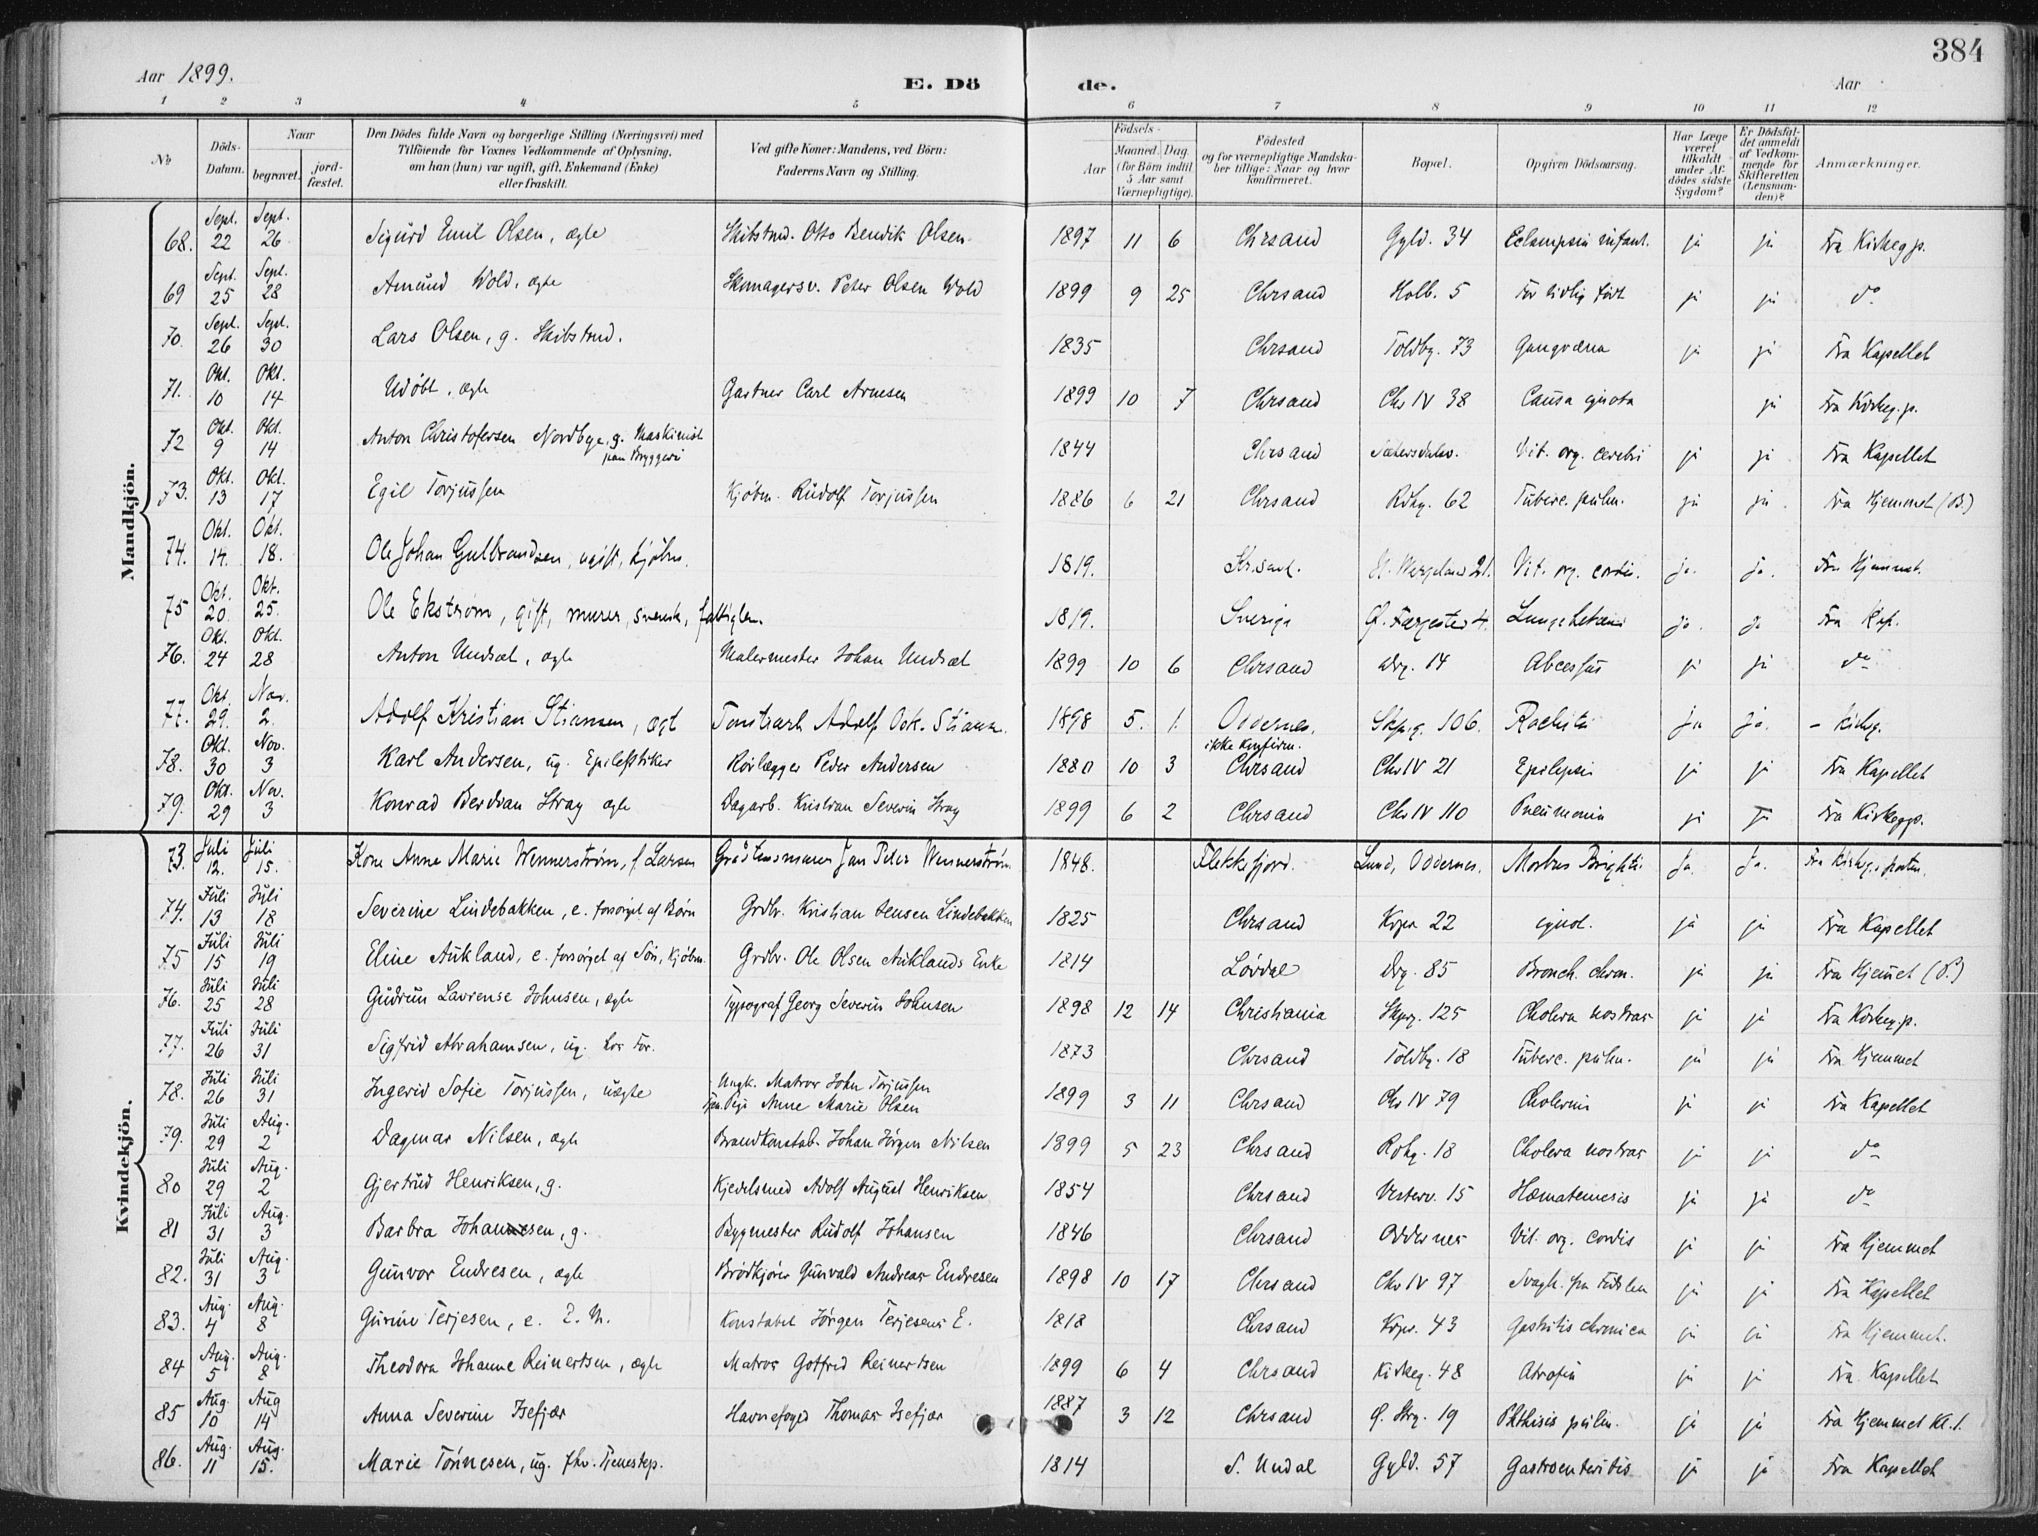 384
Aar 1899.
E. Dö
de.
Aar
1 2 3 4 5 6 7 8 9 10 11 12
No
Döds-Datum.
Naar
begravet.
jord-fæstet.
Den Dödes fulde Navn og borgerlige Stilling (Næringsvei) med
Tilföiende for Voxnes Vedkommende af Oplysning,
om han (hun) var ugift, gift, Enkemand (Enke)
eller fraskilt.
Ved gifte Koner: Mandens, ved Börn:
Faderens Navn og Stilling.
Födsels-
Aar
Maaned. Dag.
(for Börn indtil
5 Aar samt
Værnepligtige).
Födested
og for værnepligtige Mandska-
ber tillige: Naar og hvor
konfirmeret.
Bopæl.
Opgiven Dödsaarsag.
Har Læge
været
tilkaldt
under Af-
dödes sidste
Sygdom?
Er Dödsfal-
det anmeldt
af Vedkom-
mende for
Skifteretten
(Lensman-
den)?
Anmærkninger.
Mandkjön.
68. Sept. 22 Sept. 26 Sigurd Emil Olsen, ægte Skibstmd. Otto Bendik Olsen 1897 11 6 Chrsand Gyld. 34 Eclampsia infant. ja ja Fra Kirkeg.p.
69 Sept. 25 Sept. 28 Amund Wold, ægte Skomagersv. Peter Olsen Wold 1899 9 25 Chrsand Holb. 5 For tidlig født ja ja do
70. Sept. 26 Sept. 30 Lars Olsen, g. Skibstmd. 1835 Chrsand Toldbg. 73 Gangræna ja ja Fra Kapellet
71. Okt. 10 Okt. 14 Udøbt, ægte Gartner Carl Arnesen 1899 10 7 Chrsand Chr IV 38 Causa ignota ja Fra Kirkeg.p.
72 Okt. 9 Okt. 14 Anton Christofersen Nordbye, g. Maskinist paa Bryggeri 1844 Chrsand Sætersdalsv. Vit. org. cerebri ja ja Fra Kapellet
73. Okt. 13 Okt. 17 Egil Torjussen Kjøbm. Rudolf Torjussen 1886 6 21 Chrsand Rdhg. 62 Tuberc. pulm. ja ja Fra Hjemmet (B.)
74. Okt. 14. Okt. 18. Ole Johan Gulbrandsen, ugift, kjøbm. 1819. Kr.sand. H. Wergeland 21. Vit. org. cordis. ja. ja. Fra Hjemmet.
75 Okt. 20. Okt. 25. Ole Ekstrøm, gift, murer, svensk, fattiglem. 1819. Sverige Ø. Færgested 4. ja. ja Fra Kap.
76. Okt. 24 Okt. 28 Anton Undsæt, ægte Malermester Johan Undsæt 1899 10 6 Chrsand Drg. 14 Abcessus ja ja do
77. Okt. 29. Nov. 2. Adolf Kristian Stiansen, ægt Adolf Osk. Stiansen. 1898 5. 1. Oddernes. Skpg. 106. Rachitis ja ja. - Kirkeg.
78. Okt. 30 Nov. 3 Karl Andersen, ug. Epileptiker Rørlægger Peder Andersen 1880 10 3 ikke konfirm. Chrsand Chr IV 21 Epilepsi ja ja Fra Kapellet
79. Okt. 29 Nov. 3 Konrad Berdvan Stray ægte Dagarb. Kristian Severin Stray 1899 6 2 Chrsand Chr IV 110 Pneumonia ja ja Fra Kirkegp.
Kvindekjön.
73. Juli 12. Juli 15. Kone Anne Marie Wennerstrøm, f. Larsen Jan Peter Wennerstrøm 1848. Flekkefjord. Lund, Oddernes. Morbus Brighti. Ja. Ja. Fra Kirkeg.porten.
74. Juli 13 Juli 18 Severine Lindebakken, e. forsørget af Børn Grdbr. Kristian Jensen Lindebakken 1825 Chrsand Krpr 22 ignot. ja ja Fra Kapellet
75 Juli 15 Juli 19 Eline Aukland, e. forsørget af Søn, Kjøbm. Grdbr. Ole Olsen Auklands Enke 1814 Løvdal Drg. 85 Bronch. chron. ja ja Fra Hjemmet (P.)
76. Juli 25 Juli 28 Gudrun Lavrense Johnsen, ægte Typograf Georg Severin Johnsen 1898 12 14 Christiania Skpg. 125 Cholera nostras ja ja Fra Kirkeg.p.
77. Juli 26 Juli 31 Sigfrid Abrahamsen, ug. hos For. 1873 Chrsand Toldbg. 18 Tuberc. pulm. ja ja Fra Hjemmet
78. Juli 26 Juli 31 Ingerid Sofie Torjussen, uægte Ungk. Matros John Torjussen Tjen. Pige Anne Marie Olsen 1899 3 11 Chrsand Chr IV 79 Cholerine ja ja Fra Kapellet
79. Juli 29 Aug. 2 Dagmar Nilsen, ægte Brandkonstab. Johan Jörgen Nilsen 1899 5 23 Chrsand Rdhg. 18 Cholera nostras ja ja do
80 Juli 29 Aug. 2 Gjertrud Henriksen, g. Kjedelsmed Adolf August Henriksen 1854 Chrsand Vesterv. 15 Hæmatemesis ja ja do
81 Juli 31 Aug. 3 Barbra Johannesen, g. Byggmester Rudolf Johansen 1846 Chrsand Oddernes Vit. org. cordis ja ja Fra Hjemmet
82. Juli 31 Aug. 3 Gunvor Endresen, ægte Brødkjører Gunvald Andreas Endresen 1898 10 17 Chrsand Chr IV 97 Svagh. fra Fødslen ja ja Fra Kapellet
83. Aug. 4 Aug. 8 Gurine Terjesen, e. Konstabel Jörgen Terjesens E. 1818 Chrsand Krpr. 43 Gastritis chronica ja ja Fra Hjemmet.
84 Aug. 5 Aug. 8 Theodora Johanne Reinertsen, ægte Matros Gotfred Reinertsen 1899 6 4 Chrsand Kirkeg. 48 Atrofia ja ja Fra Kapellet
85 Aug. 10 Aug 14 Anna Severine Isefjær Havnefoged Thomas Isefjær 1887 3 12 Chrsand Ø. Strg. 19 Phthisis pulm. ja ja Fra Hjemmet Kl. 1.
86. Aug. 11 Aug. 15. Marie Tönnesen, ug. fhv. Tjenestep. 1814 S. Undal Gyld. 57 Gastroenteritis ja ja Fra Kapellet